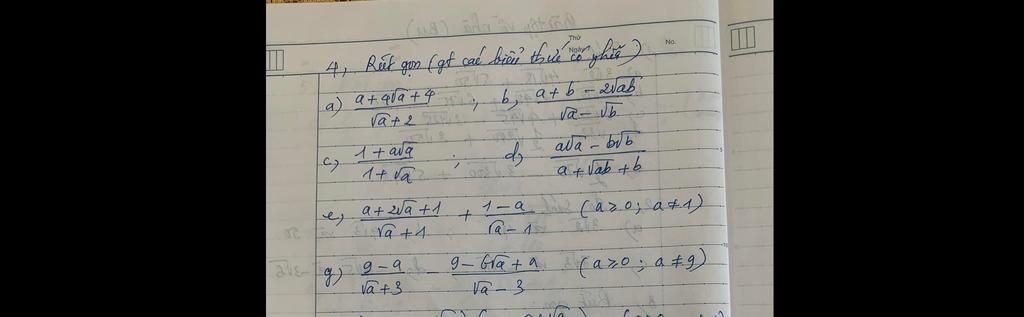 Thứ
Ngày
No.
4, Rút gọn (gt các biểu thức có nghĩa)
a) (a+4√a+4)/(√a+2) ; b, (a+b-2√ab)/(√a-√b)
c, (1+a√a)/(1+√a) ; d, (a√a-b√b)/(a+√ab+b)
e, (a+2√a+1)/(√a+1) + (1-a)/(√a-1) (a≥0; a≠1)
g) (9-a)/(√a+3) - (9-6√a+a)/(√a-3) (a≥0; a≠9)